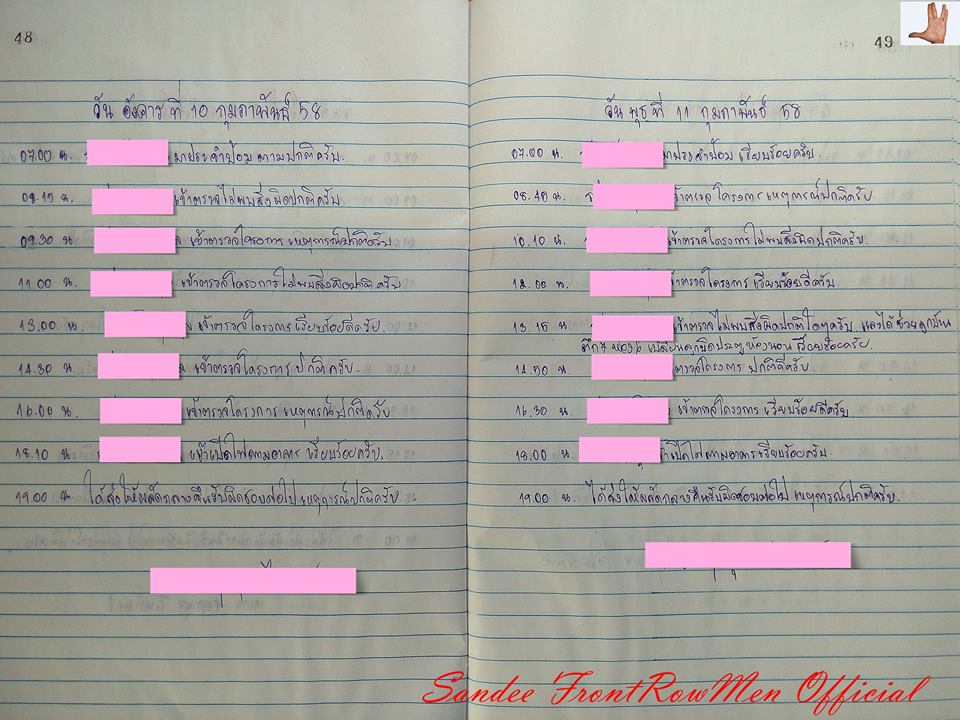 48
วัน อังคาร ที่ 10 กุมภาพันธ์ 58
07.00 น. มาประจำป้อม ตามปกติครับ.
08.15 น. เข้าตรวจไม่พบสิ่งผิดปกติครับ.
09.30 น เข้าตรวจโครงการ เหตุการณ์ปกติครับ
11.00 น เข้าตรวจโครงการไม่พบสิ่งผิดปกติครับ
13.00 น เข้าตรวจโครงการ เรียบร้อยดีครับ.
14.30 น. เข้าตรวจโครงการ ปกติครับ.
16.00 น เข้าตรวจโครงการ เหตุการณ์ปกติครับ
18.10 น เข้าเปิดไฟตามอาคาร เรียบร้อยครับ.
19.00 น ได้ส่งให้ผลัดกลางคืนรับผิดชอบต่อไป เหตุการณ์ปกติครับ
49
วัน พุธ ที่ 11 กุมภาพันธ์ 58
07.00 น. มาประจำป้อม เรียบร้อยครับ.
08.45 น. เข้าตรวจโครงการ เหตุการณ์ปกติครับ
10.10 น. เข้าตรวจโครงการไม่พบสิ่งผิดปกติครับ.
12.00 น. เข้าตรวจโครงการ เรียบร้อยดีครับ.
13.15 น เข้าตรวจไม่พบสิ่งผิดปกติใดๆครับ และได้ช่วยลูกบ้าน
ตึก7 เปลี่ยนลูกบิดประตูห้องนอน เรียบร้อยครับ.
14.50 น. ตรวจโครงการ ปกติดีครับ.
16.30 น. เข้าตรวจโครงการ เรียบร้อยดีครับ
18.00 น. เข้าเปิดไฟตามอาคารเรียบร้อยครับ.
19.00 น. ได้ส่งให้ผลัดกลางคืนรับผิดชอบต่อไป เหตุการณ์ปกติครับ.
Sandee FrontRowMen Official